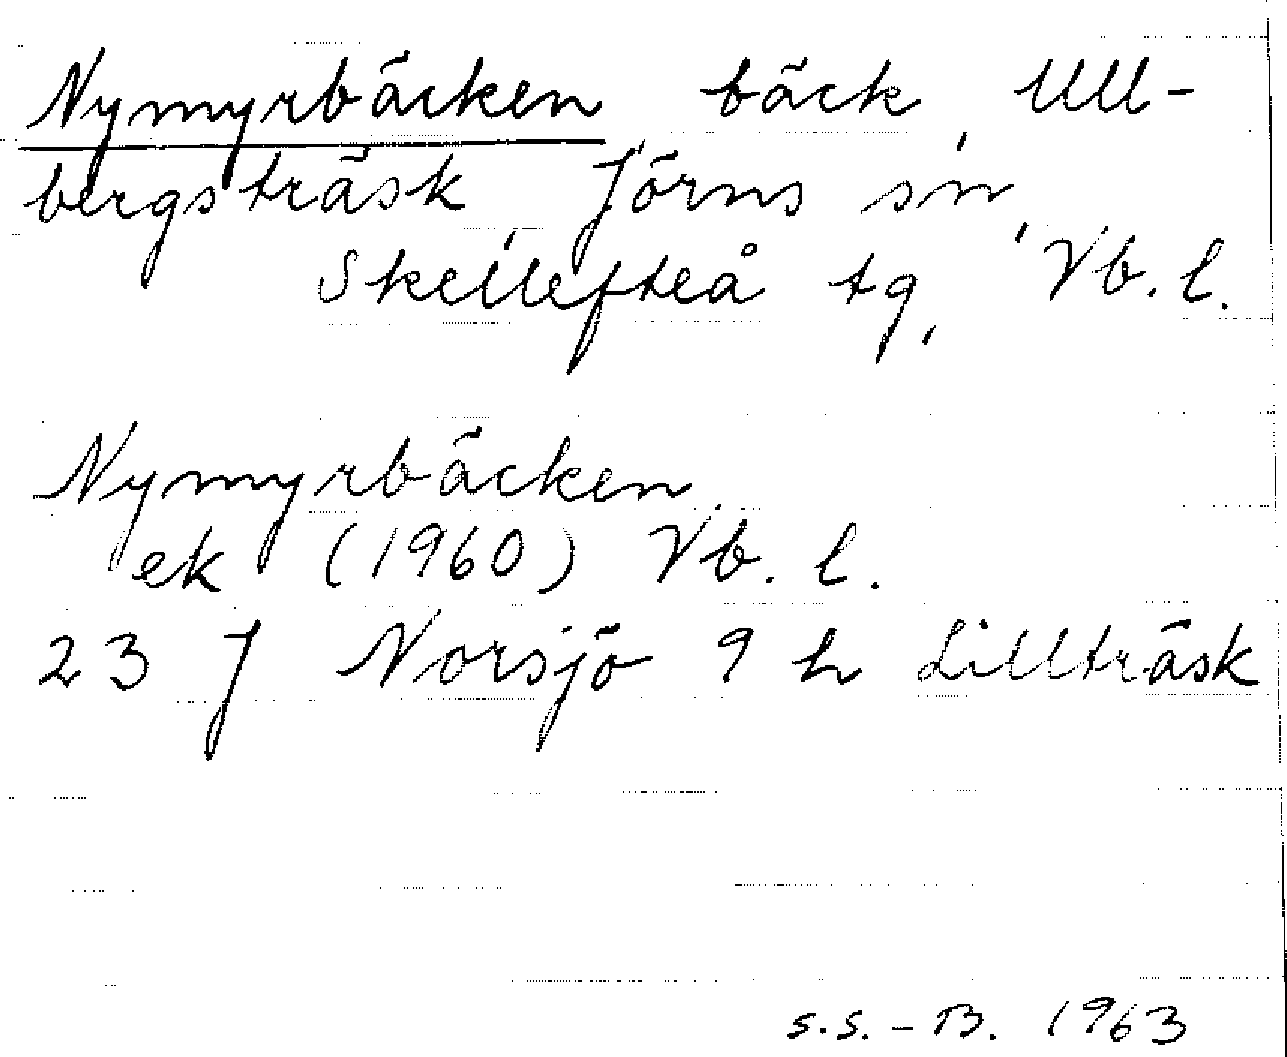 Nymyrbäcken bäck, Ull-
bergsträsk, Jörns sn,
Skellefteå tg, Vb. l.
Nymyrbäcken
ek (1960) Vb. l.
23 J Norsjö 9 h Lillträsk
S.S.-B. 1963